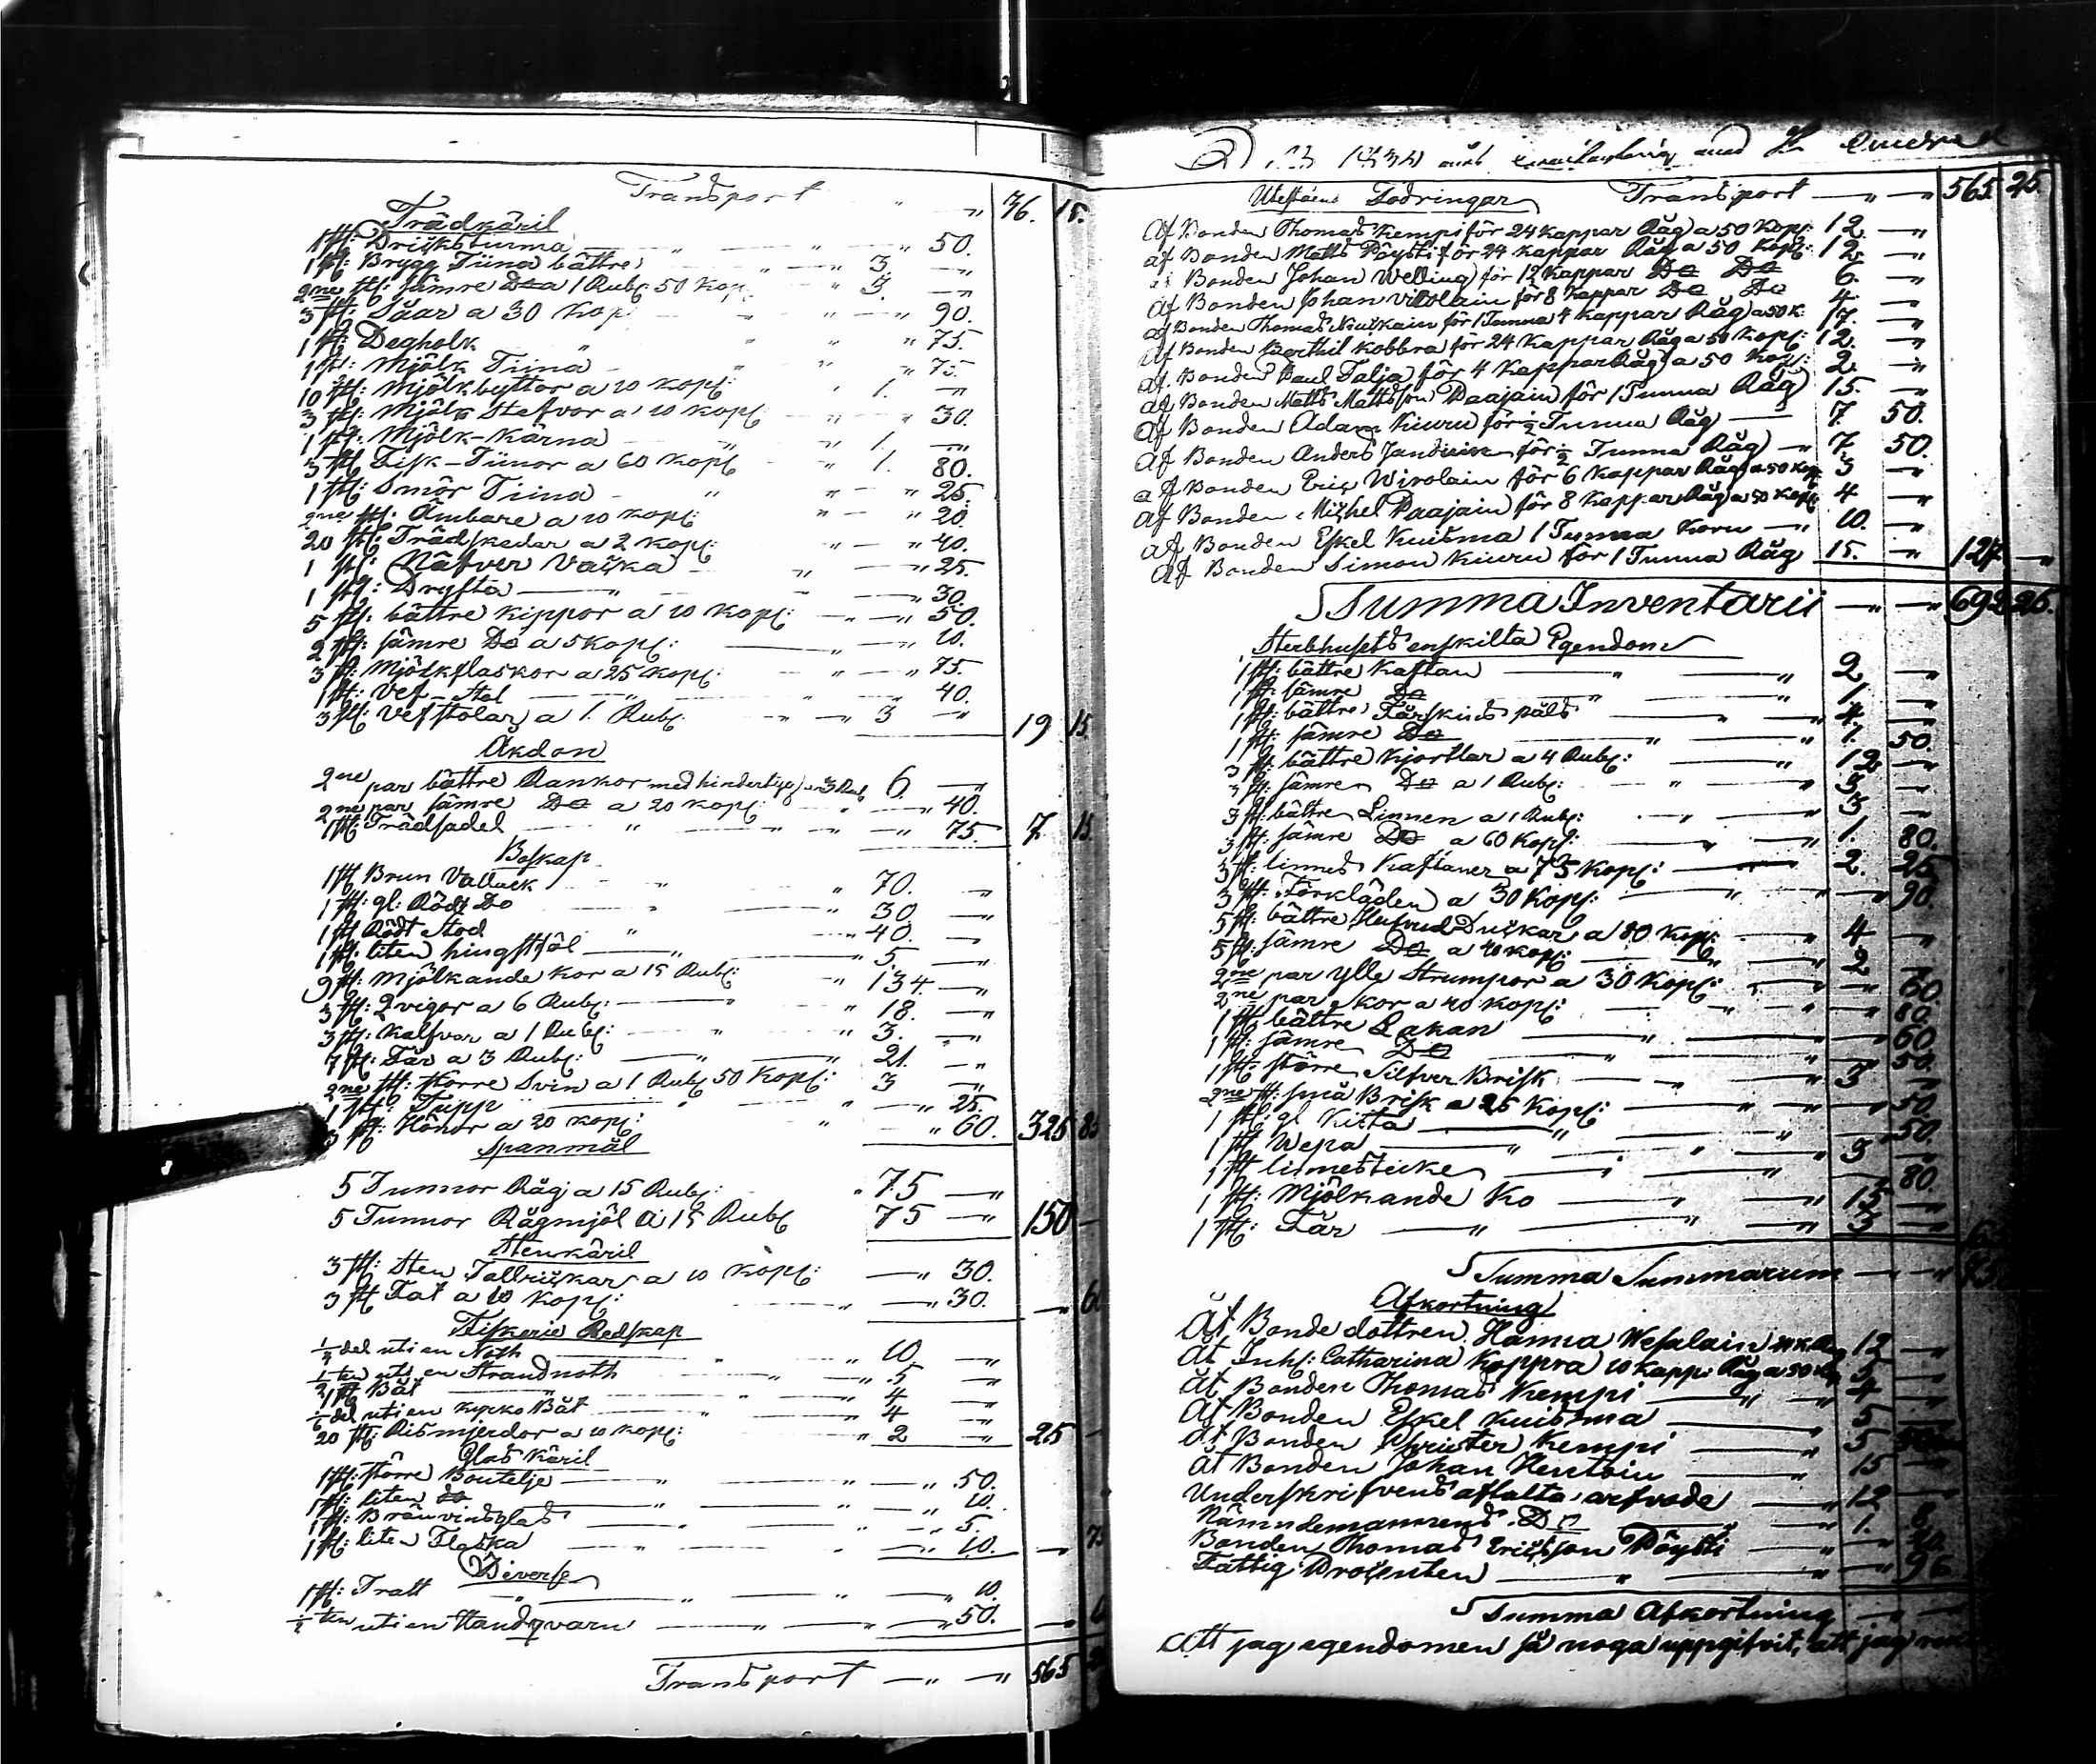 Transport — " 36. 15.
Trädkäril
1 st: Dricksturma — " — 50.
1 st: Brygg Tiina bättre — " 3. — "
2ne st: sämre Do a 1 Rub: 50 Kop: " 3. — "
3 st: Såar a 30 Kop: — " 90.
1 st: Degholk " — " 75.
1 st: Mjölk Tiina — " 75.
10 st: Mjölkbyttor a 10 Kop: " 1. — "
3 st: Mjölk Stefvor a 10 Kop: — " 30.
1 st: Mjölk-Kärna — " 1. — "
3 st: Fisk-Tiinor a 60 Kop: — " 1. 80.
1 st: Smör Tiina — " — " 25.
2ne st: Ämbare a 10 Kop: " — " 20.
20 st: Trädskedar a 2 Kop: " — " 40.
1 st: Näfver Vacka — " — " 25.
1 st: Dryfta — " — " 30.
5 st: bättre Kippor a 10 Kop: — " — " 50.
2 st: sämre Do a 5 Kop: — " — " 10.
3 st: Mjölkflaskor a 25 Kop: " — " 75.
1 st: Vef-Stol — " — " 40.
3 st: Vefstolar a 1. Rub: " — " 3 — " 19 15
Åkdon
2ne par bättre Rankor med hindertyg a 3 Rub: 6. —
2ne par sämre Do a 20 Kop: — " 40.
1 st: Trädsadel — " — " — 75. 7 15
Boskap
1 st Brun Vallack " " 70. — "
1 st: gl: Rödt Do " — " 30. — "
1 st Rödt Stod " — " 40. —
1 st: liten hingstföl — " — " 5. — "
9 st: Mjölkande Kor a 15 Rub: — " 134. — "
3 st: Qvigor a 6 Rub: — " — " 18. — "
3 st: Kalfvar a 1 Rub: — " — " 3. — "
7 st: Får a 3 Rub: — " — " 21. — "
2ne st: större Svin a 1 Rub 50 Kop: 3 — "
1 st: Tupp — " — " 25.
3 st: Hönor a 20 Kop: " " 60. 325 85
Spanmål
5 Tunnor Råg a 15 Rub: " 75 — "
5 Tunnor Rågmjöl a 15 Rub 75 — " 150 —
Stenkäril
3 st: Sten Tallrickar a 10 Kop: — " 30.
3 st Fat a 10 Kop: " — " 30. — "
Fiskerie Redskap
del uti en Noth — " — " 10. — "
uti en Strandnoth — " 5 — "
1 st Båt — " — " 4 — "
1/6 del uti en kyrko Båt — " — " 4 — "
20 st: Rismjerdor a 10 Kop: " 2 — " 25 —
Glas Käril
1 st: större Boutelje — " — " 50.
1 st: liten do — " — " 10.
1 st: Bränvinsglas — " — " 5.
1 st: liten Flaska — " — " 10. —
Diverse
1 st: Tratt — " — " — " 10.
1/2 ten uti en Handqvarn — " — " 50. — "
Transport — " — " 565
Utestående Fodringar Transport — " — " 565 25
Af Bonden Thomas Kempi för 24 Kappar Råg a 50 Kop: 12. — "
af Bonden Matts Pöysti för 24 Kappar Råg a 50 Kop: 12. — "
Bonden Johan Welling för 12 Kappar Do Do 6. — "
Af Bonden Johan Virolain för 8 Kappar Do Do 4. — "
af Bonden Thomas för 1 Tunna 4 Kappar Råg a 50 K: 17. — "
Af Bonden Berthil Kobbra för 24 Kappar Råg a 50 Kop: 12. — "
af Bonden Paul Talja för 4 Kappar Råg a 50 Kop: 2. — "
af Bonden Matts Mattsson Paajain för 1 Tunna Råg 15. — "
Af Bonden Adam Kiuru för 1/2 Tunna Råg — 7. 50.
Af Bonden Anders för 1/2 Tunna Råg — " 7. 50.
af Bonden Eric Wirolain för 6 Kappar Råg a 50 Kop 3 — "
Af Bonden Michel Paajain för 8 Kappar Råg a 50 Kop 4 — "
af Bonden Eskel Kuisma 1 Tunna Korn — " 10. — "
Af Bonden Simon Kiuru för 1 Tunna Råg 15. — " 127. — "
Summa Inventarii — " — " 692 25.
Sterbhusets enskilta Egendom
1 st: bättre Kaftan — " — " 2 — "
1 st: sämre Do — " — " 1. — "
1 st: bättre Fårskinds päls — " — " 4. — "
1 st: sämre Do — " — " 1. 50.
3 st: bättre Kjortlar a 4 Rub: — " 12 — "
3 st: sämre Do a 1 Rub: " — " 3. — "
3 st: bättre Linnen a 1 Rub: — " — " 3 — "
3 st: sämre Do a 60 Kop: — " — " 1. 80.
3 st: linnes Kaftaner a 75 Kop: — " 2. 25
3 st: Förkläden a 30 Kop: — " — " 90.
5 st: bättre Hufvud Duckar a 80 Kop: — " 4 — "
5 st: sämre Do a 40 Kop: — " — " 2 — "
2ne par ylle Strumpor a 30 Kop: — " — " 60.
2ne par Skor a 40 Kop: — " — " 80.
1 st: bättre Lakan — " — " 60.
1 st: sämre Do — " — " 50.
1 st: större Silfver Brisk — " — " 3 — "
2ne st: små Brisk a 25 Kop: — " — " 50.
1 st: gl Kitta — " — " 50.
1 st Wepa — " — " 3 — "
1 st — " — " 80.
1 st: Mjölkande Ko — " — " 15 — "
1 st: Får — " — " 3 — "
Summa Summarum — " — "
Afkortning
Åt Bonde dottren Hanna 12 — "
Åt Inh: Catharina Koppra 10 Kapp: Råg a 50 Kop 5 — "
Åt Bonden Thomas Kempi — " — " 4 — "
Åt Bonden Eskel Kuisma — " 5
Åt Bonden Christer Kempi — " 5
Åt Bonden Johan — " 15 — "
Underskrifvens aflalta arfvode — " 12 —
Nämndemannens Do — " 1.
Bonden Thomas Ericsson Pöysti — " —
Fattig Procenten — " — " 96
Summa Afkortning — " —
Att jag egendomen så noga uppgifvit, att jag